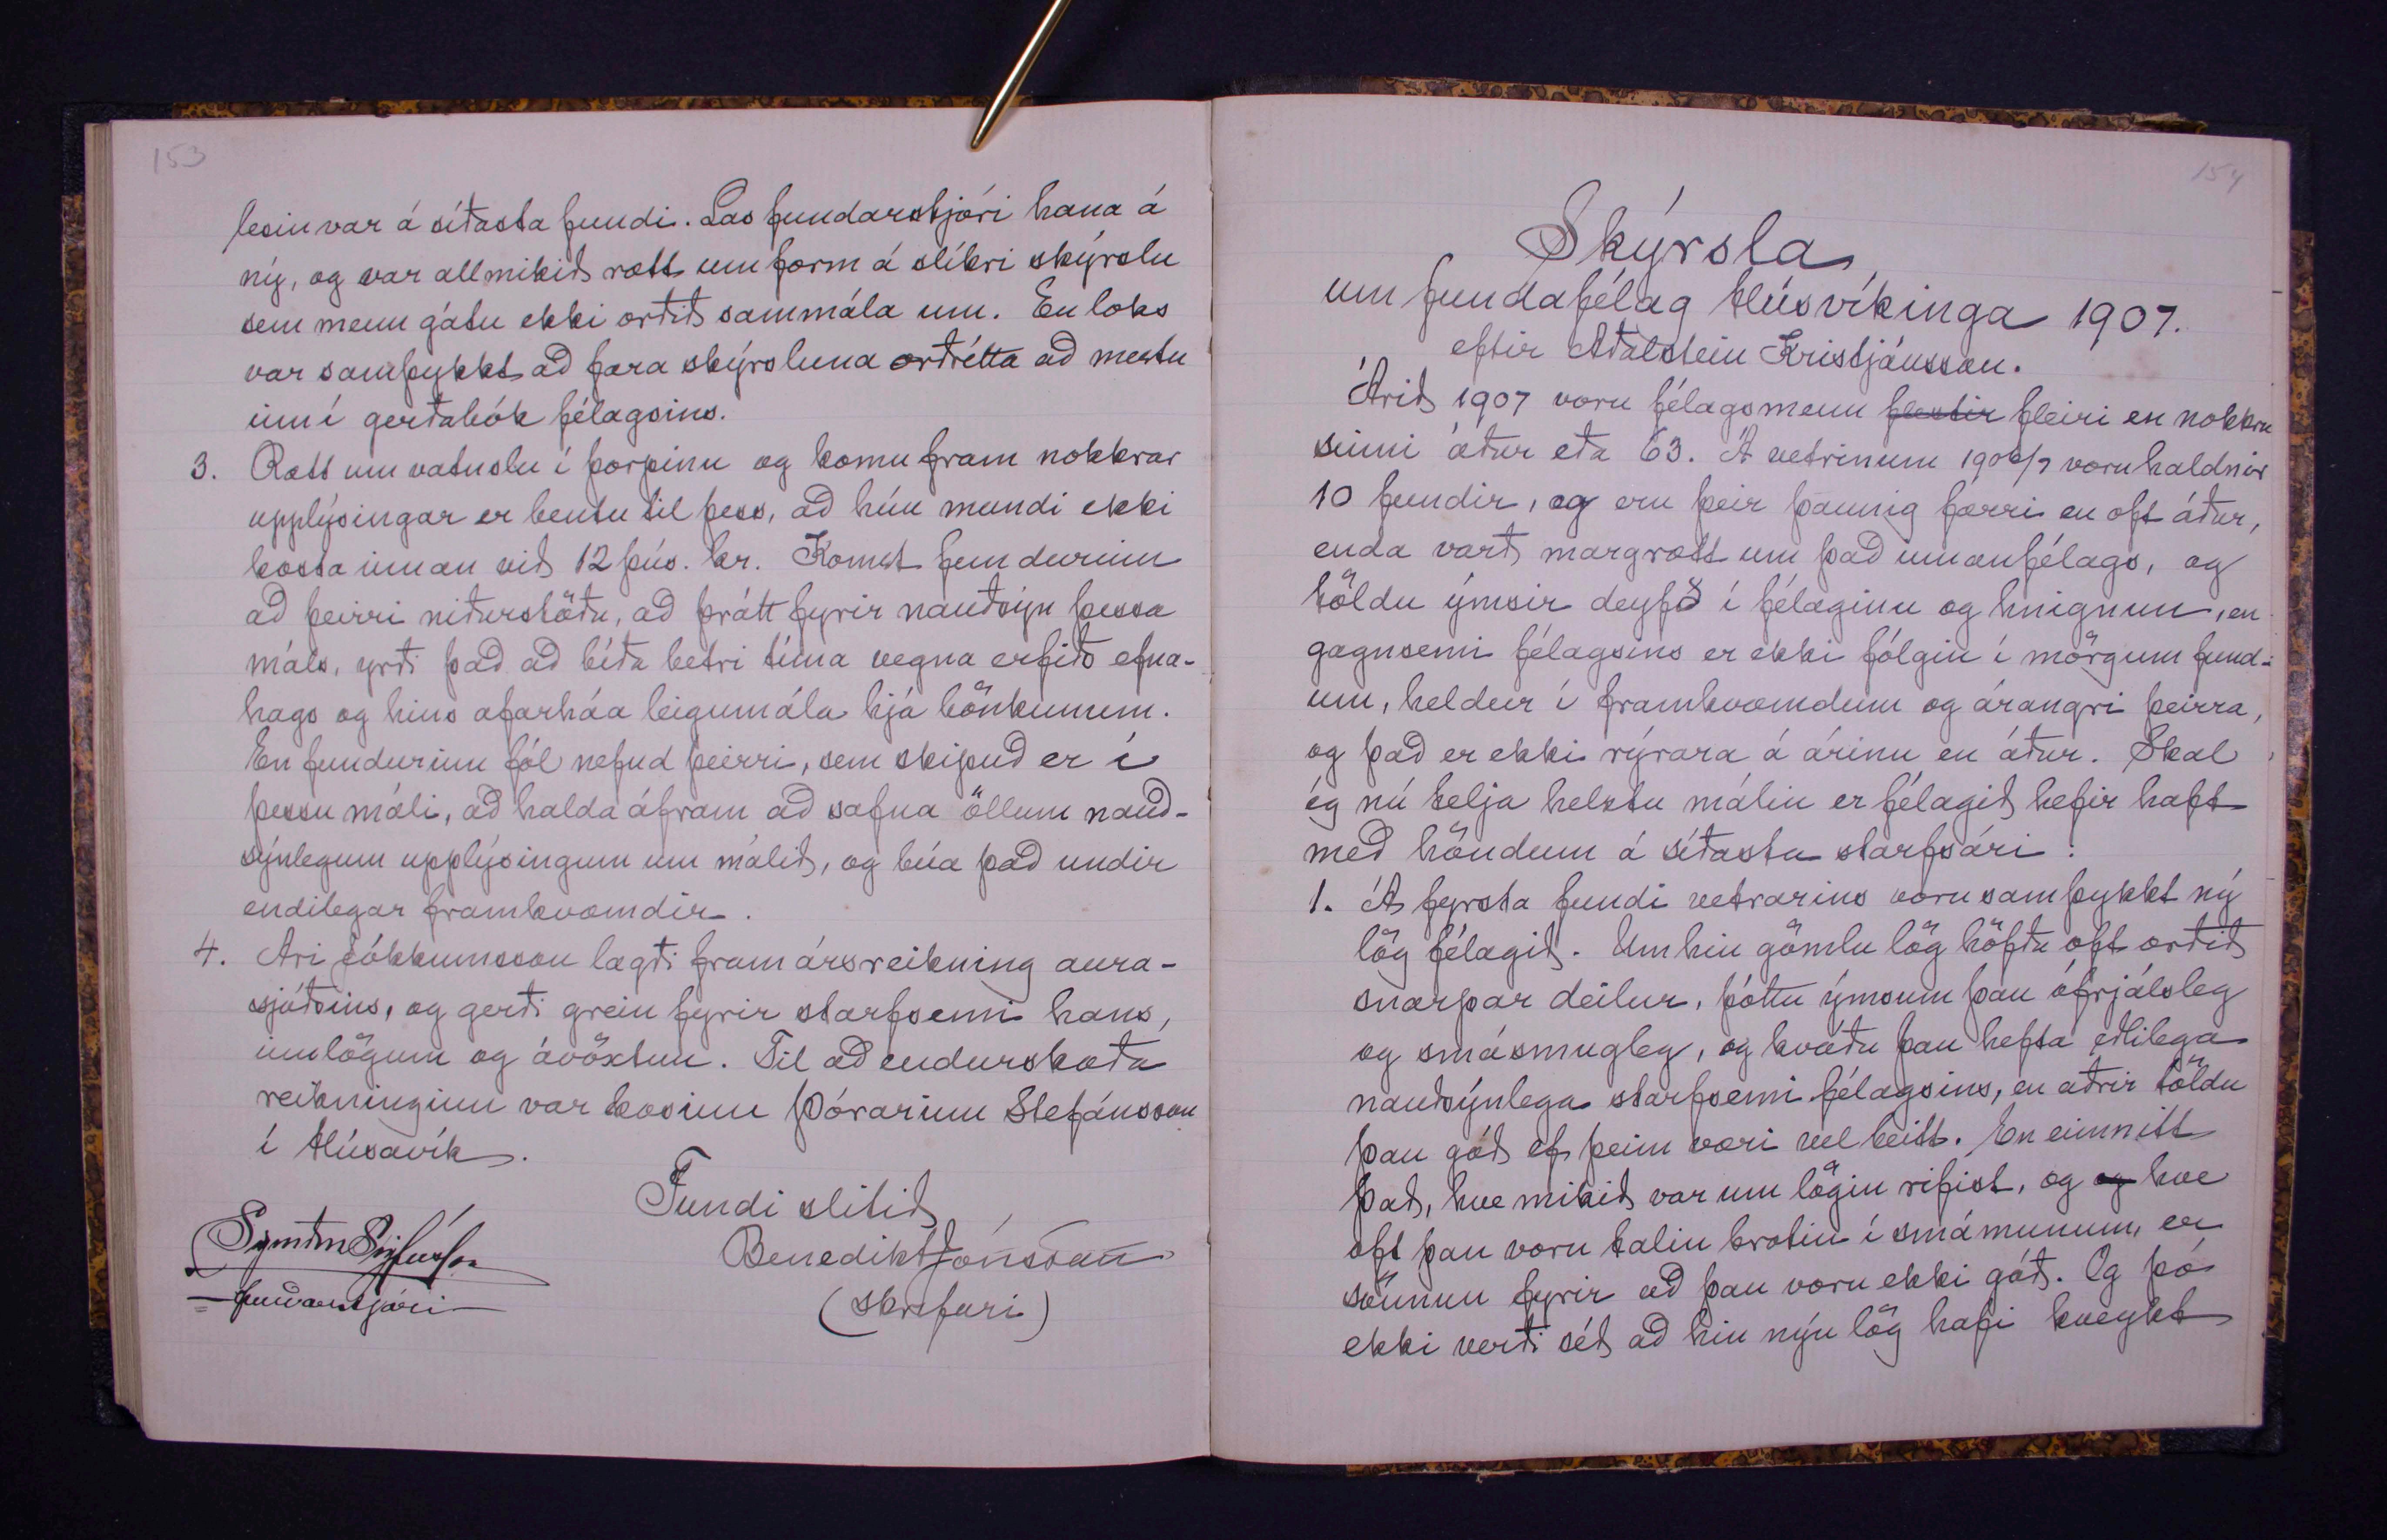 153
lesin var á síðasta fundi. Las fundarstjóri hana á
ný, og var allmikið rætt um form á slíkri skýrslu
sem menn gátu ekki orðið sammála um. En loks
var samþykkt að færa skýrsluna orðrétta að mestu
inn í gerðabók félagsins.
3. Rætt um vatnslu í þorpinu og komu fram nokkrar
upplýsingar er bentu til þess, að hún mundi ekki
kosta innan við 12 þús. kr. Komst fundurinn
að þeirri niðurstöðu, að þrátt fyrir nauðsyn þessa
máls, yrði það að bíða betri tíma vegna erfiðs efna-
hags og hins afarháa leigumála hjá bönkunum.
En fundurinn fól nefnd þeirri, sem skipuð er í
þessu máli, að halda áfram að safna öllum nauð-
sýnlegum upplýsingum um málið, og búa það undir
endilegar framkvæmdir.
4. Ari Jókkumsson lagði fram ársreikning aura-
sjóðsins, og gerði grein fyrir starfsemi hans,
innlögum og ávöxtun. Til að endurskoða
reikninginn var kosinn Þórarinn Stefánsson
í Húsavík.
Fundi slitið
Benedikt Jónsson
(skrifari)
Sigmðm Sigfússon
fundarstjóri
154
Skýrsla
um fundafélag Húsvíkinga 1907.
eftir Aðalstein Kristjánsson.
Árið 1907 voru félagsmenn flestir fleiri en nokkru
sinni áður eða 63. Á vetrinum 1906/7 voru haldnir
10 fundir, og eru þeir þannig færri en oft áður,
enda varð margrætt um það innanfélags, og
töldu ýmsir deyfð í félaginu og hnignun, en
gagnsemi félagsins er ekki fólgin í mörgum fund-
um, heldur í framkvæmdum og árangri þeirra,
og það er ekki rýrara á árinu en áður. Skal
ég nú telja helstu málin er félagið hefir haft
með höndum á síðasta starfsári:
1. Á fyrsta fundi vetrarins voru samþykkt ný
lög félagið. Um hin gömlu lög höfðu oft orðið
snarpar deilur, þóttu ýmsum þau ófrjálsleg
og smásmugleg, og kváðu þau hefta eðlilega
nauðsýnlega starfsemi félagsins, en aðrir töldu
þau góð ef þeim væri vel beitt. En einmitt
það, hve mikið var um lögin rifist, og og hve
oft þau voru talin brotin í smámunum, er
sönnun fyrir að þau voru ekki góð. Og þó
ekki verði séð að hin nýu lög hafi kveykt